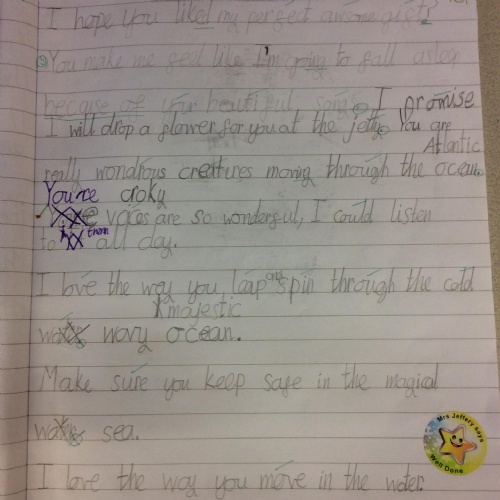 I hope you liked my perfect awsome gift?
You make me feel like I'm going to fall asleep
because of your beautiful songs. I promise
I will drop a flower for you at the jetty. You are
Atlantic
really wondrous creatures moving through the ocean.
You're croky
voices are so wonderful, I could listen
to them all day.
I love the way you leap and spin through the cold
majestic
wavy ocean.
Make sure you keep safe in the magical
sea.
Mrs Jeffery says
Well Done
I love the way you move in the water.